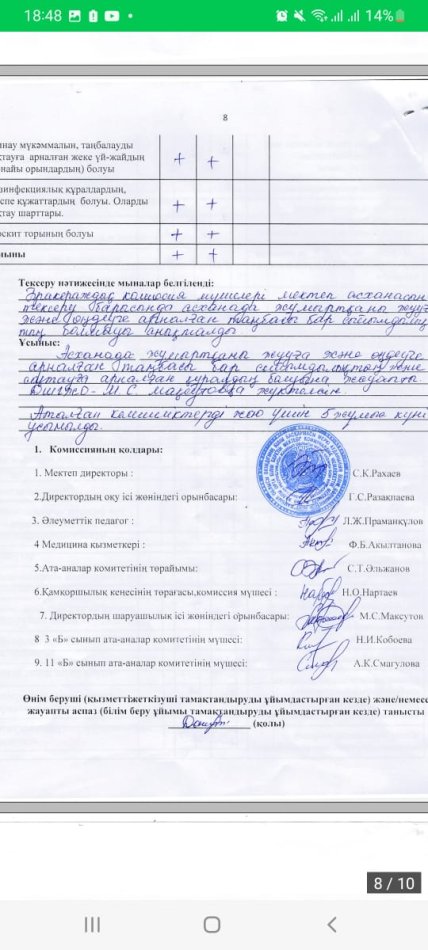 18:48
14%
8
инау мүкәммалын, таңбалауды
қтауға арналған жеке үй-жайдың
найы орындардың) болуы
+ +
шинфекциялық құралдардың,
спе құжаттардың болуы. Оларды
қтау шарттары.
+ +
оскит торының болуы
+ +
ныны
+ +
Тексеру нәтижесінде мыналар белгіленді:
Бракераждақ комиссия мүшелері мектеп асханасын
тексеру барысында асханада жұмыртқаны жууға
және өңдеуге арналған таңбасы бар сыйымдылық
тың болмауы анықталды
Ұсыныс:
Асханада жұмыртқаны жууға және өңдеуге
арналған таңбасы бар сыйымдылықтың және
арналған құралдың болуына
М.С. жүктелсін.
Аталған кемшіліктерді жою үшін 5 жұмыс күні
ұсынылды.
1. Комиссияның қолдары:
1. Мектеп директоры : С.К.Рахаев
2.Директордың оқу ісі жөніндегі орынбасары: Г.С.Разақпаева
3. Әлеуметтік педагог : Л.Ж.Праманқулов
4 Медицина қызметкері : Ф.Б.Ақылтанова
5.Ата-аналар комитетінің төрайымы: С.Т.Әлжанов
6.Қамқоршылық кеңесінің төрағасы,комиссия мүшесі : Н.О.Нартаев
7. Директордың шаруашылық ісі жөніндегі орынбасары: М.С.Максутов
8 3 «Б» сынып ата-аналар комитетінің мүшесі: Н.И.Кобоева
9. 11 «Б» сынып ата-аналар комитетінің мүшесі: А.К.Смагулова
Өнім беруші (қызметтіжеткізуші тамақтандыруды ұйымдастырған кезде) және/немесе
жауапты аспаз (білім беру ұйымы тамақтандыруды ұйымдастырған кезде) танысты
(қолы)
8 / 10